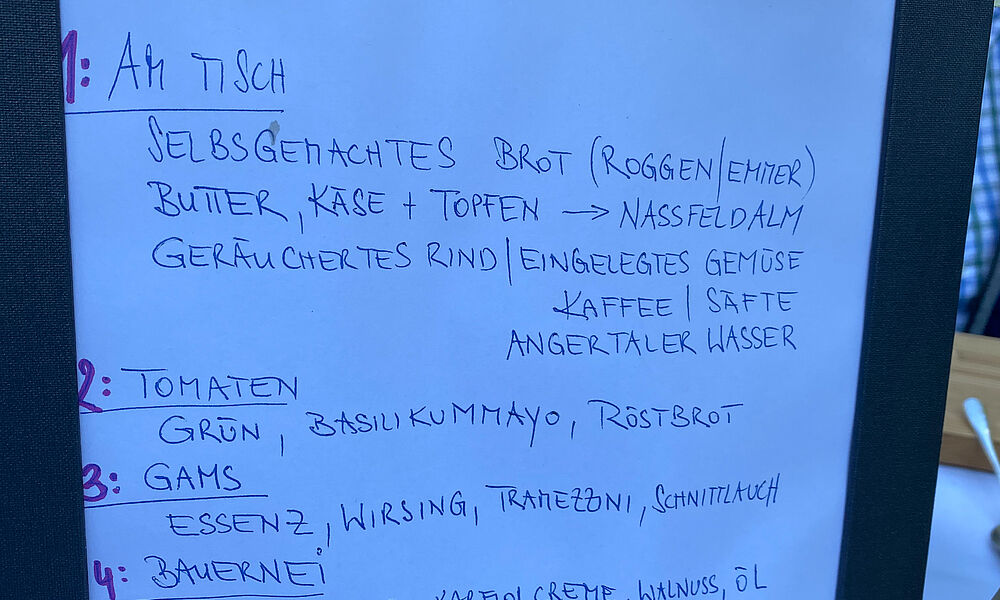 1: AM TISCH
SELBSGEMACHTES BROT (ROGGEN/EMMER)
BUTTER, KÄSE + TOPFEN → NASSFELDALM
GERÄUCHERTES RIND | EINGELEGTES GEMÜSE
KAFFEE | SÄFTE
ANGERTALER WASSER
2: TOMATEN
GRÜN, BASILIKUMMAYO, RÖSTBROT
3: GAMS
ESSENZ, WIRSING, TRAMEZZONI, SCHNITTLAUCH
4: BAUERNEI
CREME, WALNUSS, ÖL